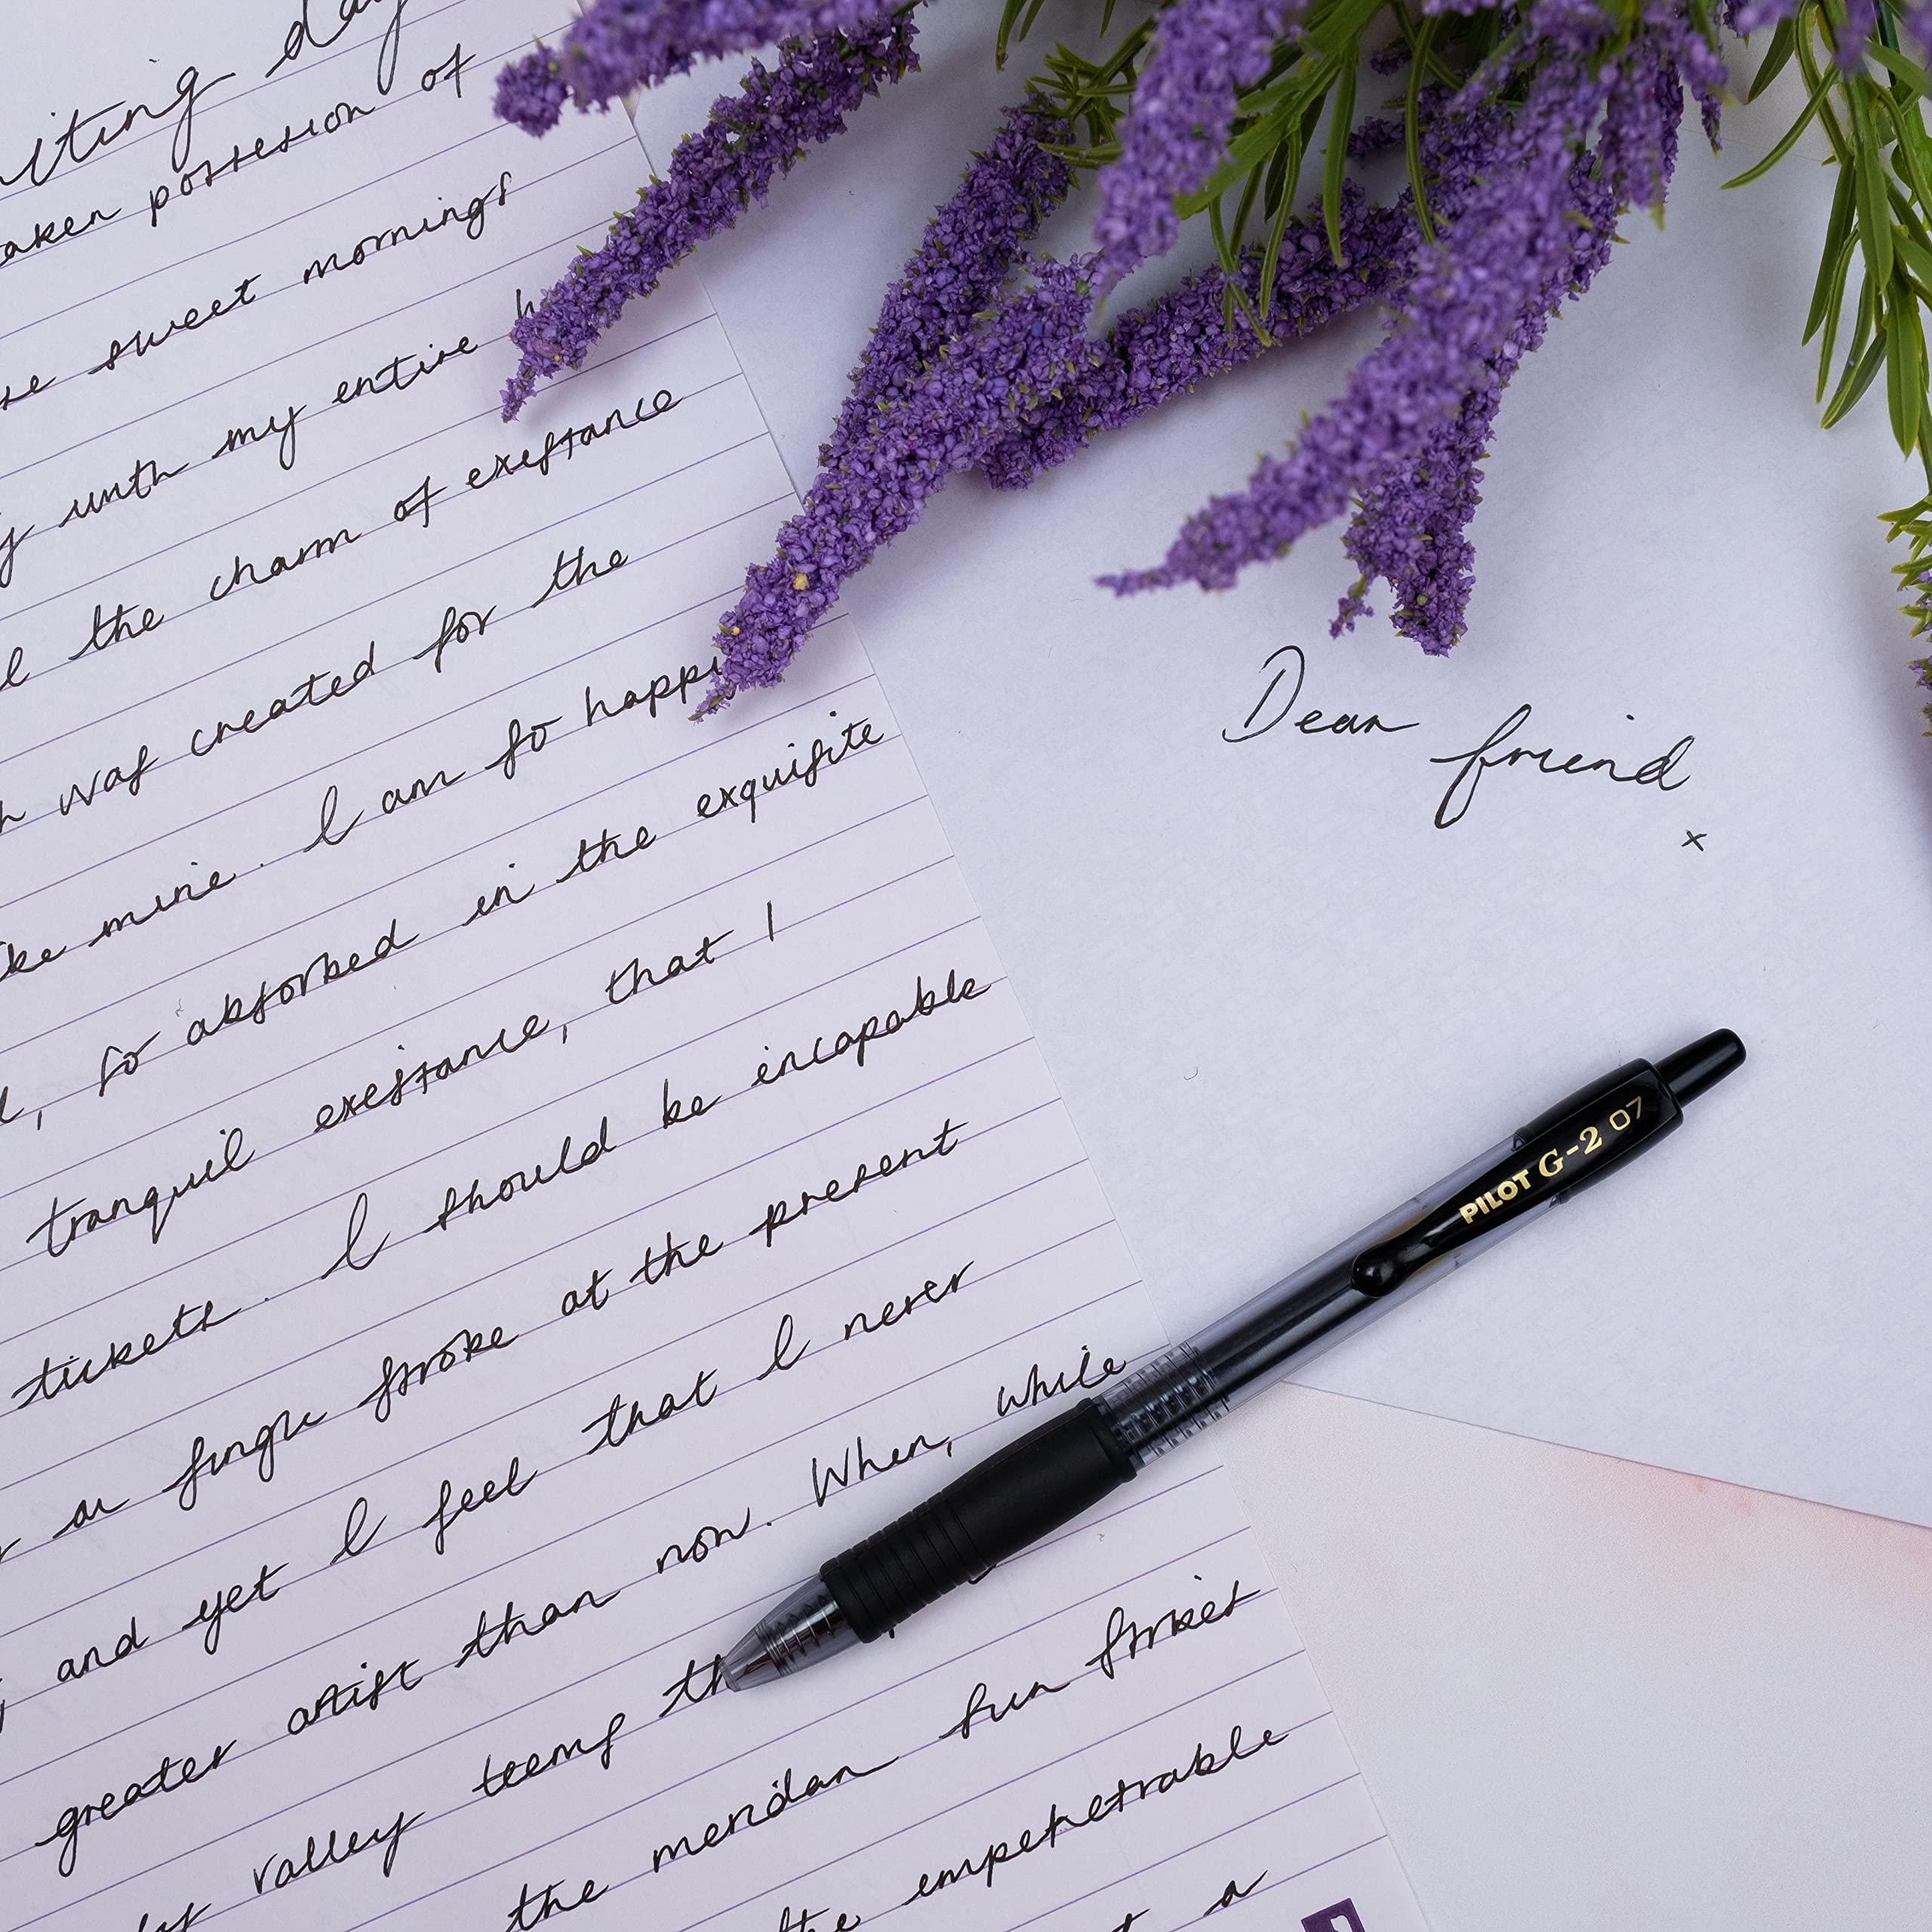 iting day
aken possession of
se sweet mornings
y with my entire h
l the charm of exestance
h was created for the
ke mine. I am so happy
d, so absorbed in the exquisite
tranquil exestance, that I
tickets. I should be incapable
a single stroke at the present
and yet I feel that I never
greater artist than now. When, while
valley teems th
the meridan sun strikes
the empenetrable
t a
Dear
friend
x
PILOT G-2 07